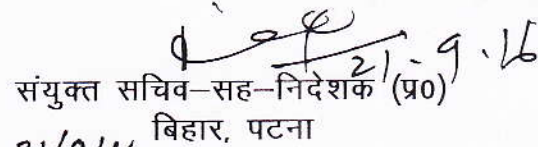 21-9-16
संयुक्त सचिव–सह–निदेशक (प्र०)
बिहार, पटना